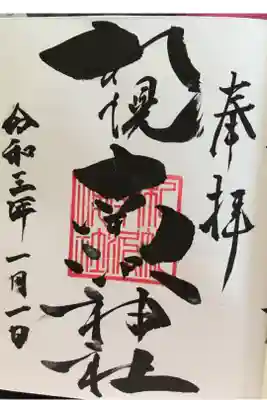 奉拝
札幌南沢神社
令和三年一月一日